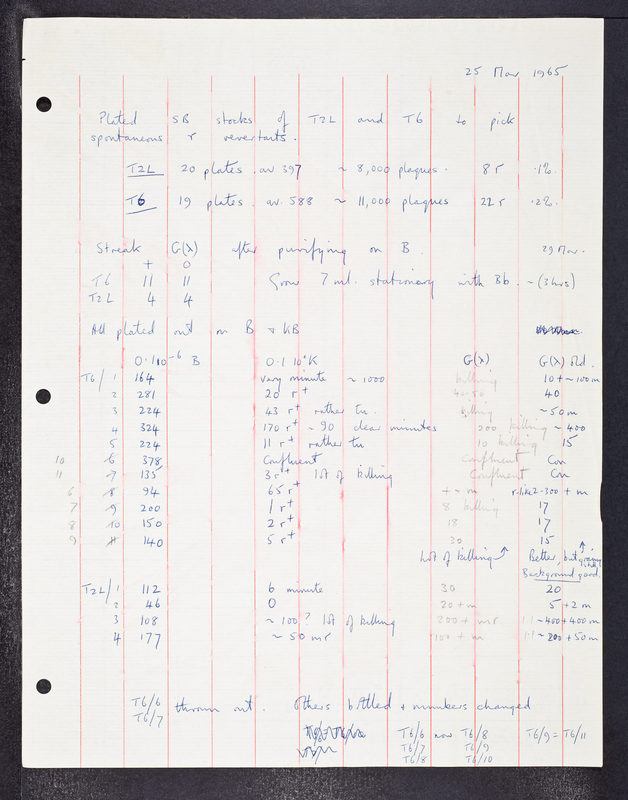 25 Mar 1965
Plated SB stocks of T2L and T6 to pick
spontaneous r revertants.
T2L 20 plates. av. 397 ~ 8,000 plaques. 8 r .1%.
T6 19 plates. av. 588 ~ 11,000 plaques 22 r .2%.
Streak G(λ) after purifying on B. 29 Mar.
+ 0
T6 11 11 Grow 7 ml. stationary with Bb. ~ (3 hrs)
T2L 4 4
All plated out on B + KB
0.1 10⁻⁶ B 0.1 10⁰K G(λ) G(λ) old.
T6/1 164 very minute ~ 1000 killing 10 + ~ 100 m
2 281 20 r⁺ 40-50 40
3 224 43 r⁺ rather tu. killing ~ 50 m
4 324 170 r⁺ ~ 90 clear minutes 200 killing ~ 400
5 224 11 r⁺ rather tu 10 killing 15
10 6 378 Confluent Confluent Con
11 7 135 3 r⁺ lot of killing Confluent Con
6 8 94 65 r⁺ + ~ m r-like 2-300 + m
7 9 200 1 r⁺ 8 killing 17
8 10 150 2 r⁺ 18 17
9 11 140 5 r⁺ 30 15
Lot of killing ↑ Better, but ↑
Background good.
T2L/1 112 6 minute 30 20
2 46 0 20 + m 5 + 2 m
3 108 ~ 100? lot of killing 200 + mr ~ 400 + 400 m
4 177 ~ 50 mr 100 + m ~ 200 + 50 m
T6/6
T6/7 thrown out. Others bottled + numbers changed
T6/6 now T6/8 T6/9 = T6/11
T6/7 T6/9
T6/8 T6/10